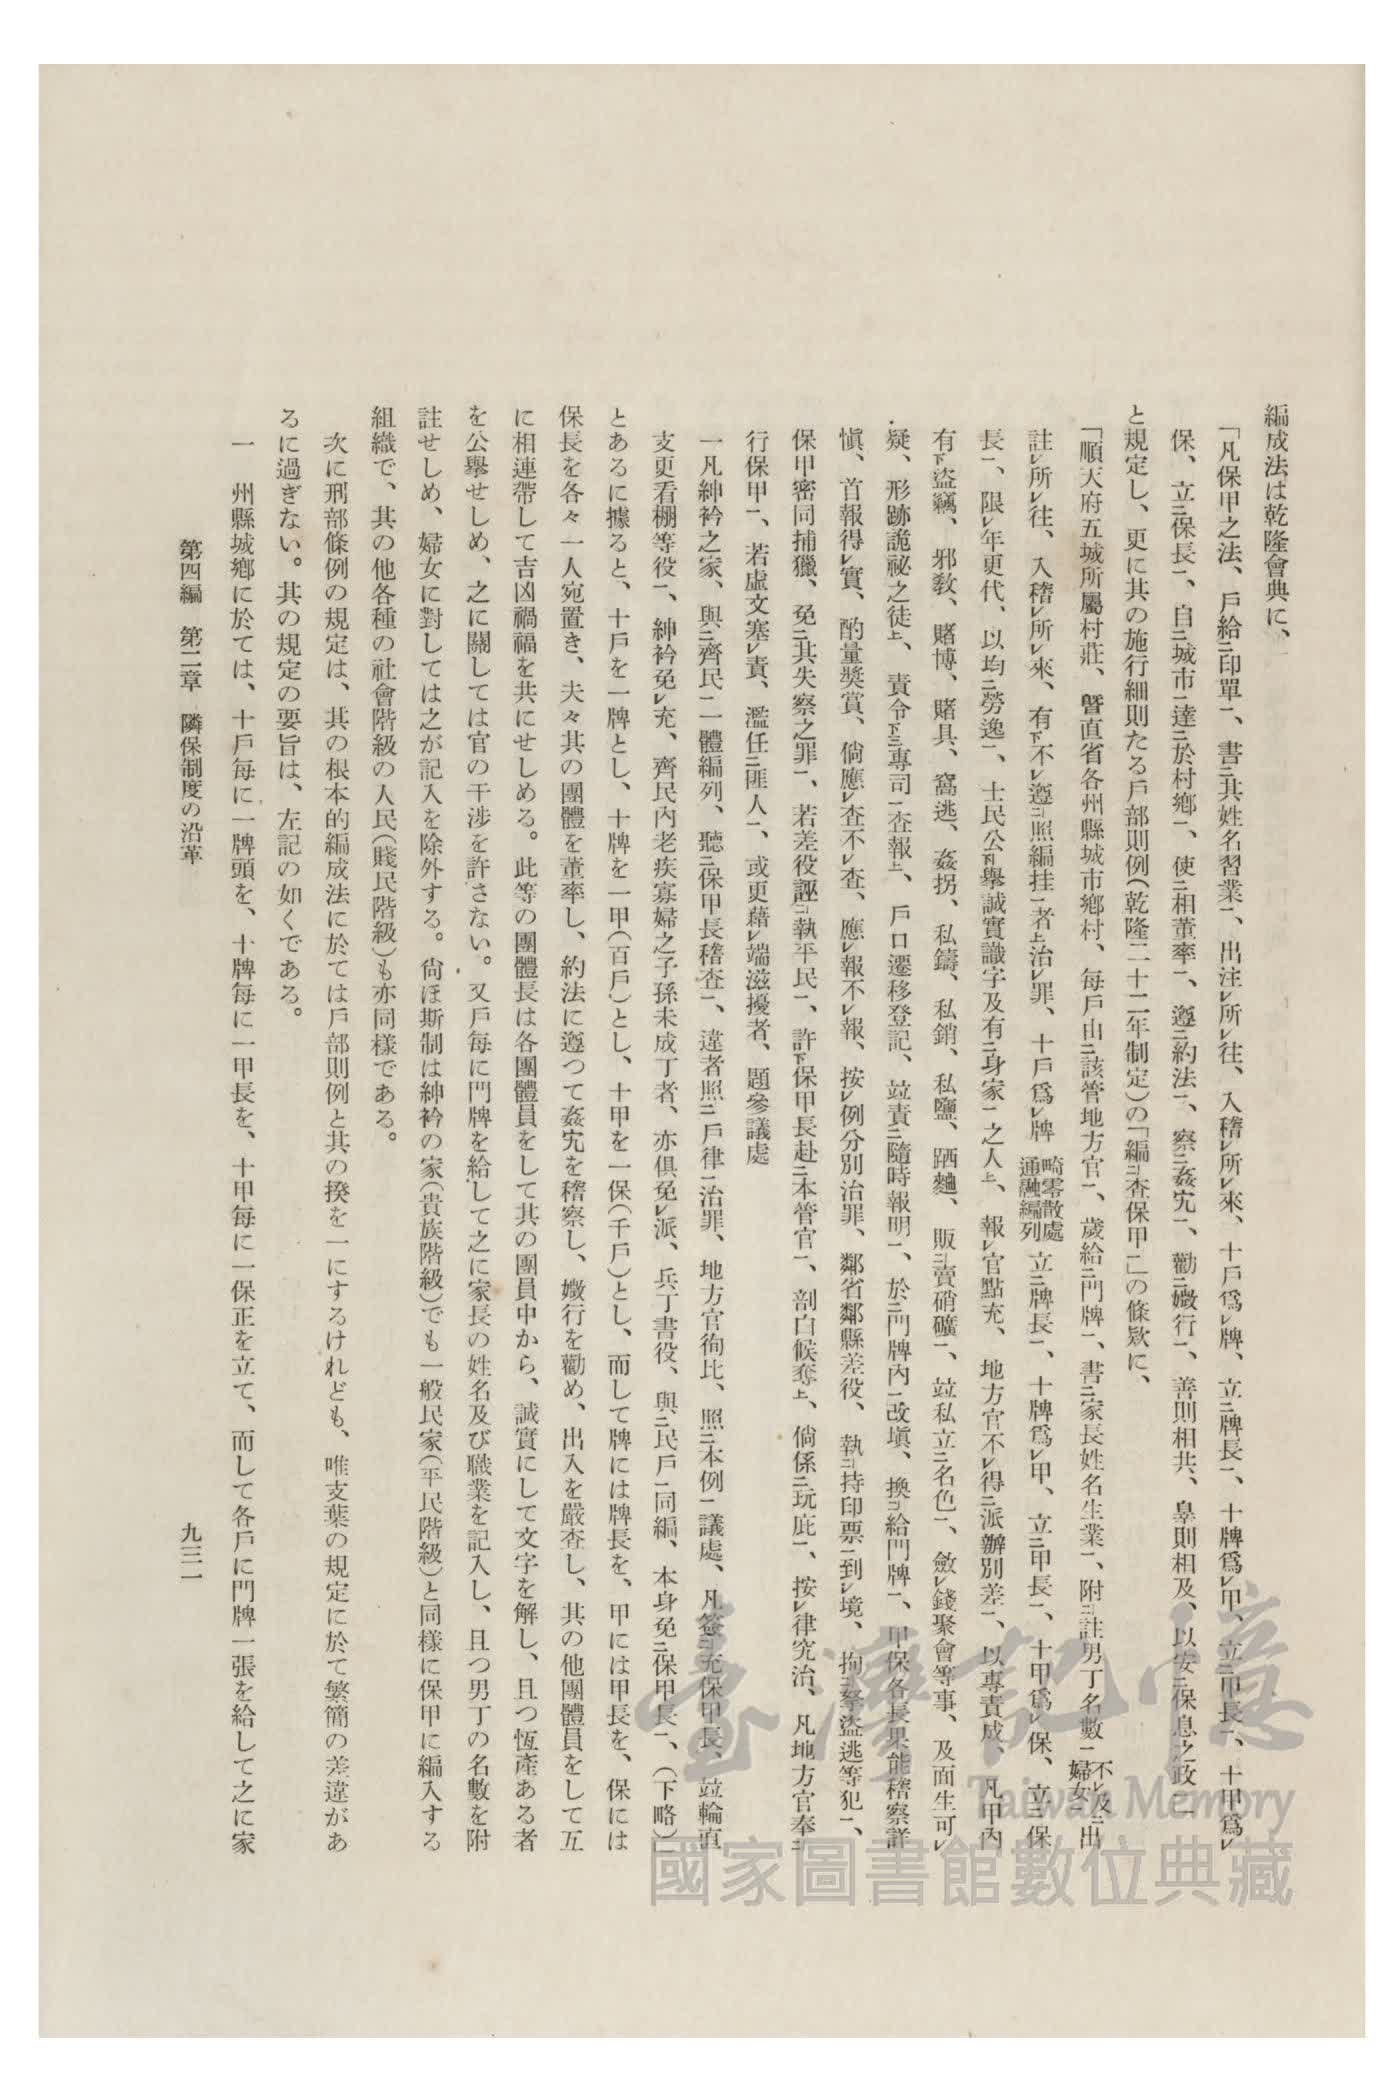 編成法は乾隆會典に、
「凡保甲之法、戶給㆓印單㆒、書㆓其姓名習業㆒、出注㆑所㆑往、入稽㆑所㆑來、十戶爲㆑牌、立㆓牌長㆒、十牌爲㆑甲、立㆓甲長㆒、十甲爲㆑
保、立㆓保長㆒、自㆓城市㆒達㆓於村鄉㆒、使㆓相董率㆒、遵㆓約法㆒、察㆓姦宄㆒、勸㆓媺行㆒、善則相共、辠則相及、以安㆓保息之政㆒」
と規定し、更に其の施行細則たる戶部則例(乾隆二十二年制定)の「編㆓査保甲㆒」の條欵に、
「順天府五城所屬村莊、曁直省各州縣城市鄉村、每戶由㆓該管地方官㆒、歲給㆓門牌㆒、書㆓家長姓名生業㆒、附㆓註男丁名數㆒不㆑及㆓婦女㆒出
註㆑所㆑往、入稽㆑所㆑來、有㆘不㆑遵㆓照編挂㆒者㆖治㆑罪、十戶爲㆑牌 畸零散處通融編列 立㆓牌長㆒、十牌爲㆑甲、立㆓甲長㆒、十甲爲㆑保、立㆓保
長㆒、限㆑年更代、以均㆓勞逸㆒、士民公㆘擧誠實識字及有㆓身家㆒之人㆖、報㆑官點充、地方官不㆑得㆓派辦別差㆒、以專責成、凡甲內
有㆘盜竊、邪敎、賭博、賭具、窩逃、姦拐、私鑄、私銷、私鹽、跴麯、販㆓賣硝磺㆒、竝私立㆓名色㆒、斂㆑錢聚會等事、及面生可㆑
疑、形跡詭祕之徒㆖、責令㆘㆓專司㆒査報㆖、戶口遷移登記、竝責㆓隨時報明㆒、於㆓門牌內㆒改塡、換㆓給門牌㆒、甲保各長果能稽察詳
愼、首報得㆑實、酌量獎賞、倘應㆑査不㆑査、應㆑報不㆑報、按㆑例分別治罪、鄰省鄰縣差役、執㆓持印票㆒到㆑境、拘㆓拏盜逃等犯㆒、
保甲密同捕獵、免㆓其失察之罪㆒、若差役誣㆓執平民㆒、許㆘保甲長赴㆓本管官㆒、剖白候奪㆖、倘係㆓玩庇㆒、按㆑律究治、凡地方官奉㆓
行保甲㆒、若虛文塞㆑責、濫任㆓匪人㆒、或更藉㆑端滋擾者、題參議處
一凡紳衿之家、與㆓齊民㆒一體編列、聽㆓保甲長稽査㆒、違者照㆓戶律㆒治罪、地方官徇比、照㆓本例㆒議處、凡簽㆓充保甲長、竝輪直
支更看棚等役㆒、紳衿免㆑充、齊民內老疾寡婦之子孫未成丁者、亦俱免㆑派、兵丁書役、與㆓民戶㆒同編、本身免㆓保甲長㆒、(下略)」
とあるに據ると、十戶を一牌とし、十牌を一甲(百戶)とし、十甲を一保(千戶)とし、而して牌には牌長を、甲には甲長を、保には
保長を各々一人宛置き、夫々其の團體を董率し、約法に遵つて姦宄を稽察し、媺行を勸め、出入を嚴査し、其の他團體員をして互
に相連帶して吉凶禍福を共にせしめる。此等の團體長は各團體員をして其の團員中から、誠實にして文字を解し、且つ恆產ある者
を公擧せしめ、之に關しては官の干涉を許さない。又戶每に門牌を給して之に家長の姓名及び職業を記入し、且つ男丁の名數を附
註せしめ、婦女に對しては之が記入を除外する。尙ほ斯制は紳衿の家(貴族階級)でも一般民家(平民階級)と同樣に保甲に編入する
組織で、其の他各種の社會階級の人民(賤民階級)も亦同樣である。
次に刑部條例の規定は、其の根本的編成法に於ては戶部則例と其の揆を一にするけれども、唯支葉の規定に於て繁簡の差違があ
るに過ぎない。其の規定の要旨は、左記の如くである。
一 州縣城鄉に於ては、十戶每に一牌頭を、十牌每に一甲長を、十甲每に一保正を立て、而して各戶に門牌一張を給して之に家
第四編 第二章 隣保制度の沿革
九三一
臺灣記憶
Taiwan Memory
國家圖書館數位典藏